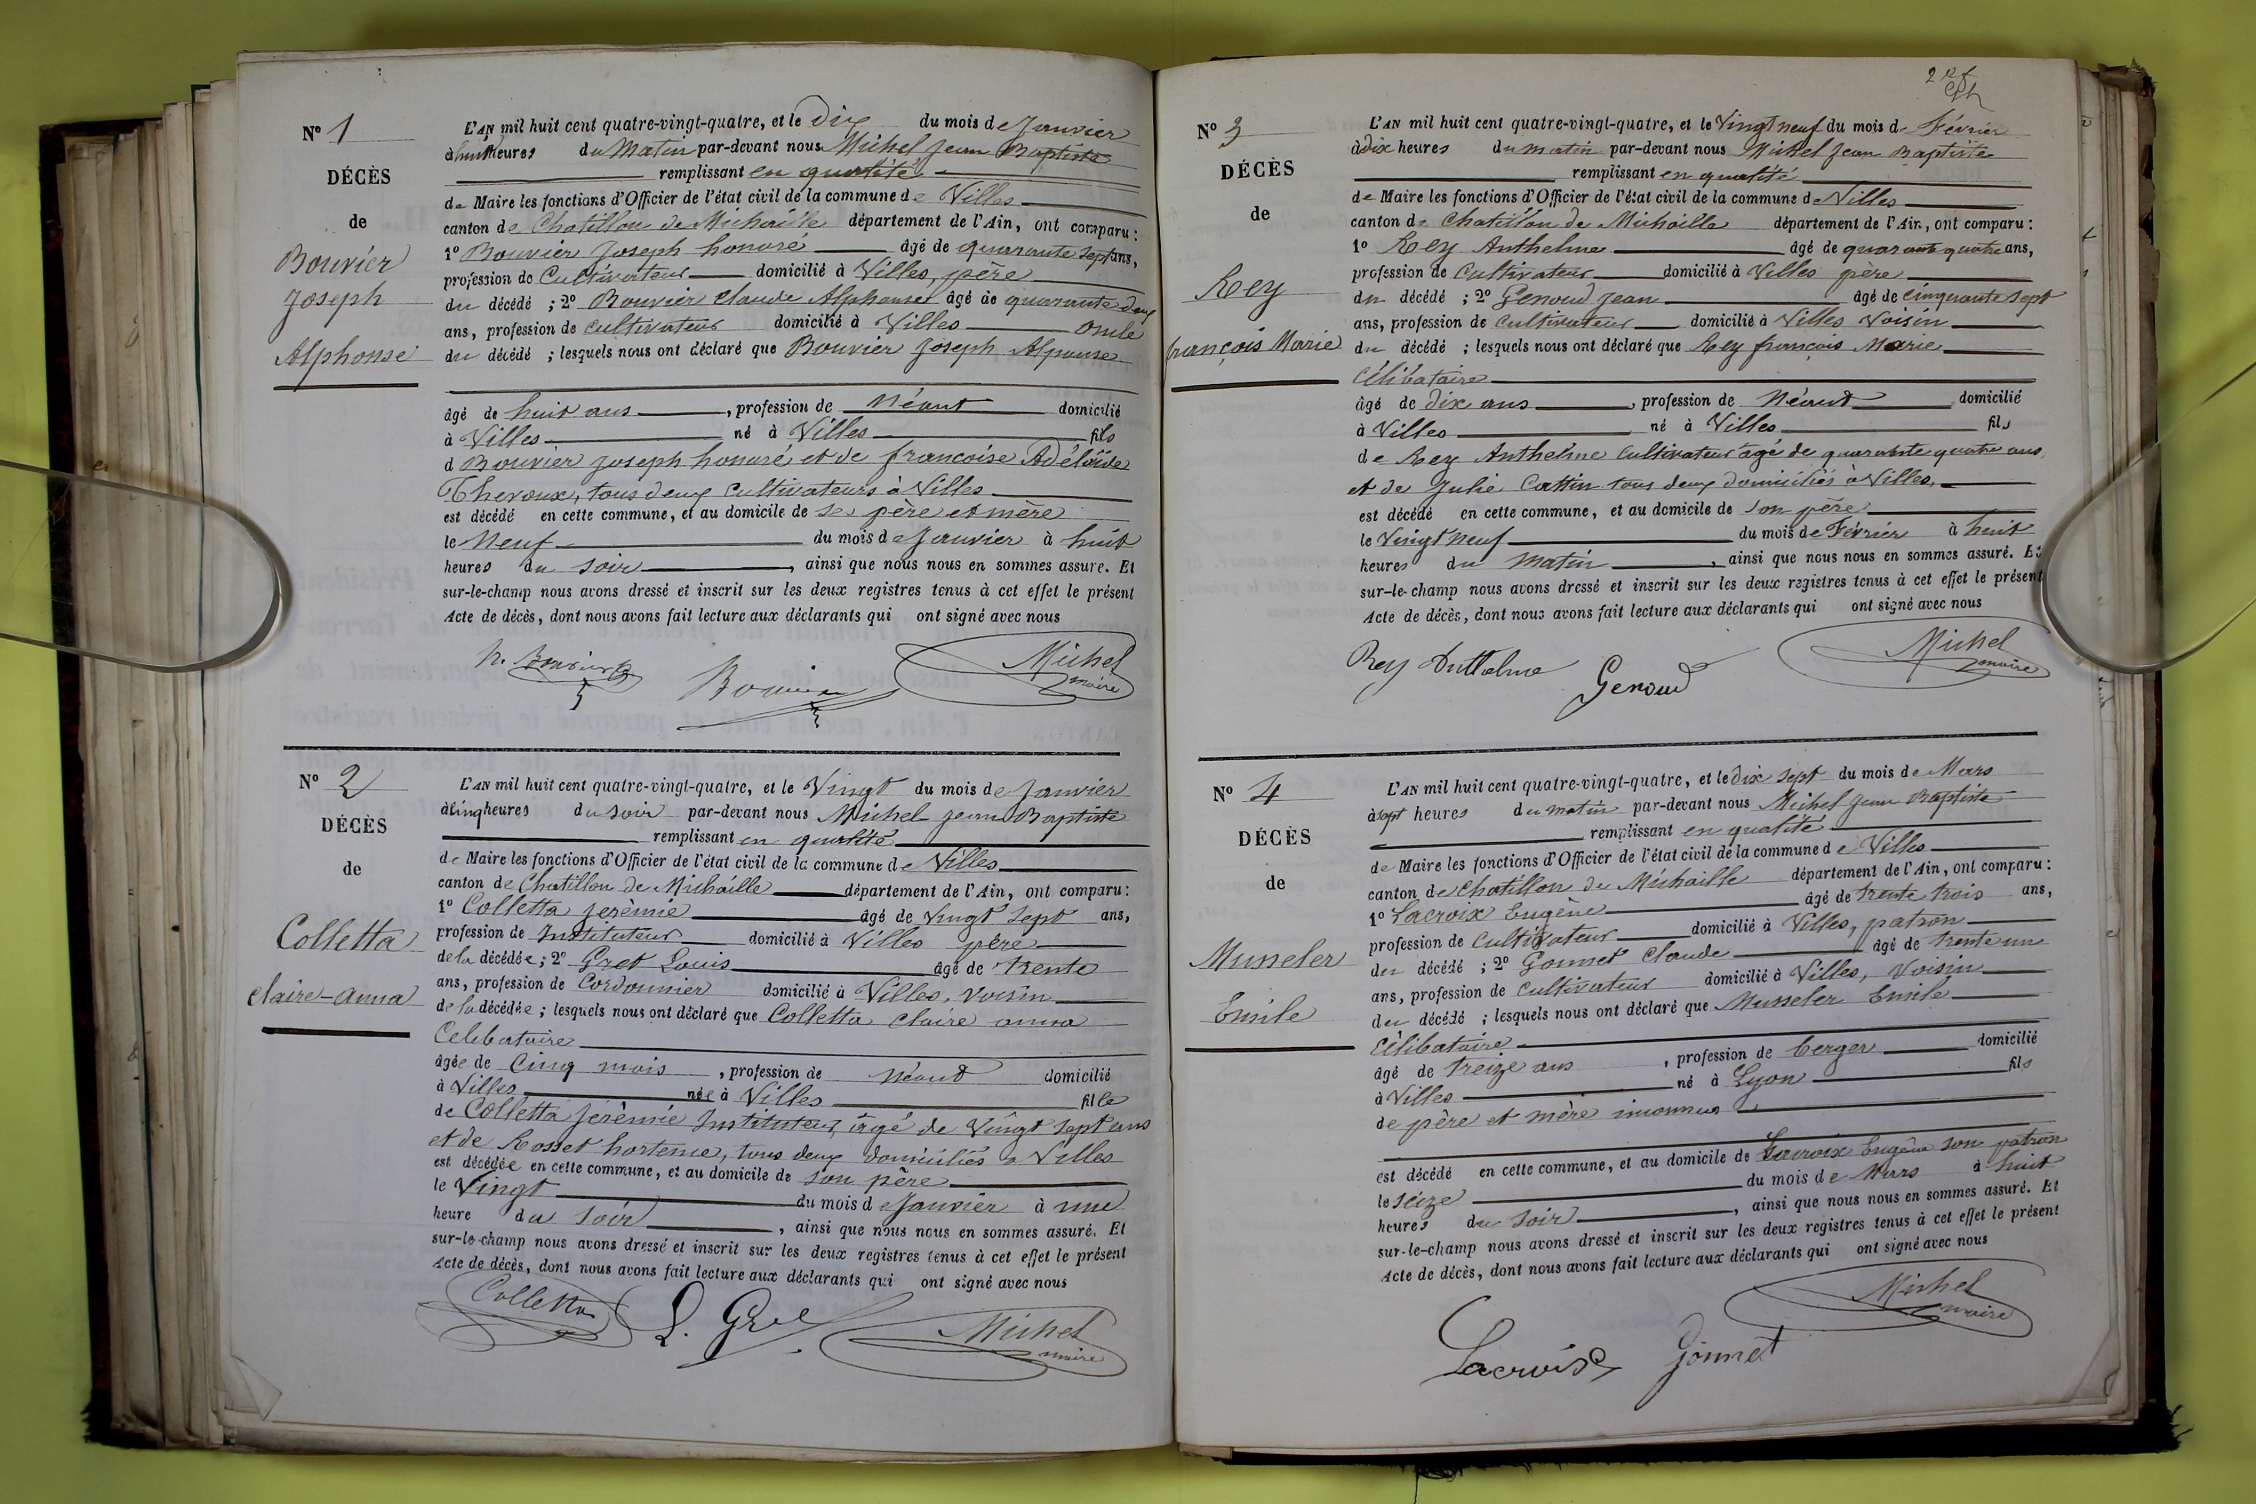 N° 1
DÉCÈS
de
Bouvier
Joseph
Alphonse
L'AN mil huit cent quatre-vingt-quatre, et le dix du mois de Janvier
à huit heures du Matin par-devant nous Michel Jean Baptiste
remplissant en qualité
de Maire les fonctions d'Officier de l'état civil de la commune de Villes
canton de Chatillon de Michaille département de l'Ain, ont comparu :
1° Bouvier Joseph honoré âgé de quarante sept ans,
profession de Cultivateur domicilié à Villes, père
du décédé ; 2° Bouvier Claude Alphonse âgé de quarante deux
ans, profession de cultivateur domicilié à Villes oncle
du décédé ; lesquels nous ont déclaré que Bouvier Joseph Alponse
âgé de huit ans, profession de Néant domicilié
à Villes né à Villes fils
d Bouvier Joseph honoré et de francoise Adélaïde
Theroux, tous deux Cultivateurs à Villes
est décédé en cette commune, et au domicile de ses père et mère
le Neuf du mois de Janvier à huit
heures du soir, ainsi que nous nous en sommes assuré. Et
sur-le-champ nous avons dressé et inscrit sur les deux registres tenus à cet effet le présent
Acte de décès, dont nous avons fait lecture aux déclarants qui ont signé avec nous
h. Bouvier Bouvier Michel
maire
N° 2
DÉCÈS
de
Colletta
Claire-anna
L'AN mil huit cent quatre-vingt-quatre, et le Vingt du mois de Janvier
à cinq heures du soir par-devant nous Michel Jean Baptiste
remplissant en qualité
de Maire les fonctions d'Officier de l'état civil de la commune de Villes
canton de Chatillon de Michaille département de l'Ain, ont comparu :
1° Colletta Jérèmie âgé de Vingt sept ans,
profession de Instituteur domicilié à Villes père
de la décédée ; 2° Gret Louis âgé de trente
ans, profession de Cordonnier domicilié à Villes, voisin
de la décédée ; lesquels nous ont déclaré que Colletta Claire anna
Celibataire
âgée de Cinq mois, profession de Néant domicilié
à Villes née à Villes fille
de Colletta Jérèmie Instituteur, âgé de Vingt sept ans
et de Rosset hortense, tous deux domiciliés à Villes
est décédée en cette commune, et au domicile de son père
le Vingt du mois de Janvier à une
heure du soir, ainsi que nous nous en sommes assuré. Et
sur-le-champ nous avons dressé et inscrit sur les deux registres tenus à cet effet le présent
Acte de décès, dont nous avons fait lecture aux déclarants qui ont signé avec nous
Colletta L. Gret Michel
maire
N° 3
DÉCÈS
de
Rey
françois Marie
L'AN mil huit cent quatre-vingt-quatre, et le Vingt neuf du mois d Février
à dix heures du matin par-devant nous Michel Jean Baptiste
remplissant en qualité
de Maire les fonctions d'Officier de l'état civil de la commune de Villes
canton de Chatillon de Michaille département de l'Ain, ont comparu :
1° Rey Anthelme âgé de quarante quatre ans,
profession de Cultivateur domicilié à Villes père
du décédé ; 2° Genoud Jean âgé de cinquante sept
ans, profession de Cultivateur domicilié à Villes Voisin
du décédé ; lesquels nous ont déclaré que Rey françois Marie
Célibataire
âgé de dix ans, profession de Néant domicilié
à Villes né à Villes fils
de Rey Anthelme Cultivateur âgé de quarante quatre ans
et de Julie Cattin tous deux domiciliés à Villes,
est décédé en cette commune, et au domicile de son père
le Vingt Neuf du mois de Février à huit
heures du Matin, ainsi que nous nous en sommes assuré. Et
sur-le-champ nous avons dressé et inscrit sur les deux registres tenus à cet effet le présent
Acte de décès, dont nous avons fait lecture aux déclarants qui ont signé avec nous
Rey Anthelme Genoud Michel
maire
N° 4
DÉCÈS
de
Musseler
Emile
L'AN mil huit cent quatre-vingt-quatre, et le dix sept du mois de Mars
à sept heures du matin par-devant nous Michel Jean Baptiste
remplissant en qualité
de Maire les fonctions d'Officier de l'état civil de la commune de Villes
canton de Chatillon de Michaille département de l'Ain, ont comparu :
1° Lacroix Eugène âgé de trente trois ans,
profession de Cultivateur domicilié à Villes, patron
du décédé ; 2° Gonnet Claude âgé de trente un
ans, profession de Cultivateur domicilié à Villes, Voisin
du décédé ; lesquels nous ont déclaré que Musseler Emile
Célibataire
âgé de treize ans, profession de berger domicilié
à Villes né à Lyon fils
de père et mère inconnus
est décédé en cette commune, et au domicile de Lacroix Eugène son patron
le seize du mois de Mars à huit
heures du soir, ainsi que nous nous en sommes assuré. Et
sur-le-champ nous avons dressé et inscrit sur les deux registres tenus à cet effet le présent
Acte de décès, dont nous avons fait lecture aux déclarants qui ont signé avec nous
Lacroix Gonnet Michel
maire